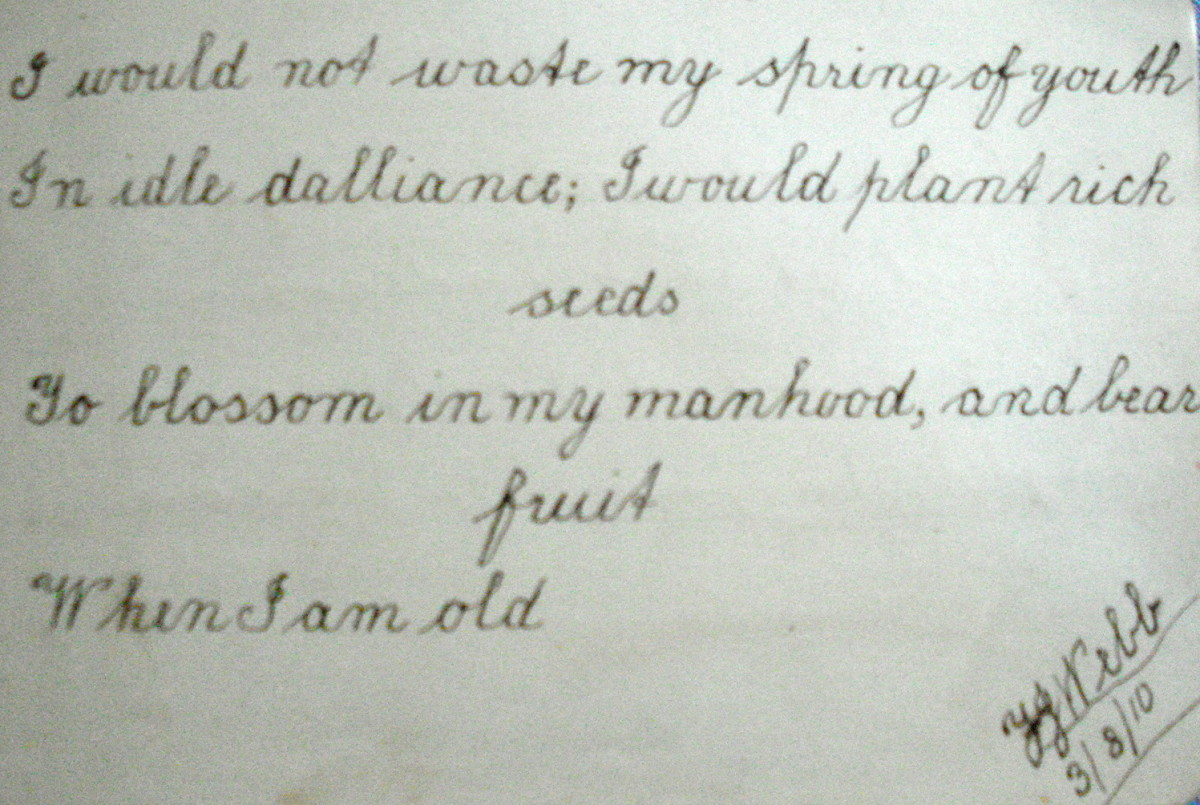 I would not waste my spring of youth
In idle dalliance; I would plant rich
seeds
To blossom in my manhood, and bear
fruit
When I am old
Webb
3/8/10